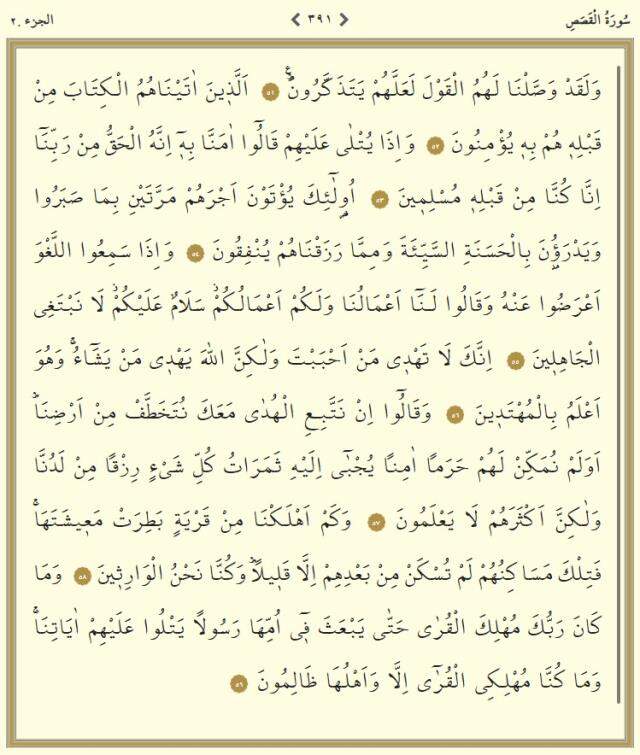 سُورَةُ الْقَصَصِ ❮ ٣٩١ ❯ الجزء ٢٠
وَلَقَدْ وَصَّلْنَا لَهُمُ الْقَوْلَ لَعَلَّهُمْ يَتَذَكَّرُونَۜ ٥١ اَلَّذ۪ينَ اٰتَيْنَاهُمُ الْكِتَابَ مِنْ
قَبْلِه۪ هُمْ بِه۪ يُؤْمِنُونَ ٥٢ وَاِذَا يُتْلٰى عَلَيْهِمْ قَالُٓوا اٰمَنَّا بِه۪ٓ اِنَّهُ الْحَقُّ مِنْ رَبِّنَٓا
اِنَّا كُنَّا مِنْ قَبْلِه۪ مُسْلِم۪ينَ ٥٣ اُو۬لٰٓئِكَ يُؤْتَوْنَ اَجْرَهُمْ مَرَّتَيْنِ بِمَا صَبَرُوا
وَيَدْرَؤُ۫نَ بِالْحَسَنَةِ السَّيِّئَةَ وَمِمَّا رَزَقْنَاهُمْ يُنْفِقُونَ ٥٤ وَاِذَا سَمِعُوا اللَّغْوَ
اَعْرَضُوا عَنْهُ وَقَالُوا لَنَٓا اَعْمَالُنَا وَلَكُمْ اَعْمَالُكُمْۘ سَلَامٌ عَلَيْكُمْۘ لَا نَبْتَغِي
الْجَاهِل۪ينَ ٥٥ اِنَّكَ لَا تَهْد۪ي مَنْ اَحْبَبْتَ وَلٰكِنَّ اللّٰهَ يَهْد۪ي مَنْ يَشَٓاءُۚ وَهُوَ
اَعْلَمُ بِالْمُهْتَد۪ينَ ٥٦ وَقَالُٓوا اِنْ نَتَّبِعِ الْهُدٰى مَعَكَ نُتَخَطَّفْ مِنْ اَرْضِنَاۜ
اَوَلَمْ نُمَكِّنْ لَهُمْ حَرَماً اٰمِناً يُجْبٰٓى اِلَيْهِ ثَمَرَاتُ كُلِّ شَيْءٍ رِزْقاً مِنْ لَدُنَّا
وَلٰكِنَّ اَكْثَرَهُمْ لَا يَعْلَمُونَ ٥٧ وَكَمْ اَهْلَكْنَا مِنْ قَرْيَةٍ بَطِرَتْ مَع۪يشَتَهَاۚ
فَتِلْكَ مَسَاكِنُهُمْ لَمْ تُسْكَنْ مِنْ بَعْدِهِمْ اِلَّا قَل۪يلاًۜ وَكُنَّا نَحْنُ الْوَارِث۪ينَ ٥٨ وَمَا
كَانَ رَبُّكَ مُهْلِكَ الْقُرٰى حَتّٰى يَبْعَثَ ف۪ٓي اُمِّهَا رَسُولاً يَتْلُوا عَلَيْهِمْ اٰيَاتِنَاۚ
وَمَا كُنَّا مُهْلِكِي الْقُرٰٓى اِلَّا وَاَهْلُهَا ظَالِمُونَ ٥٩